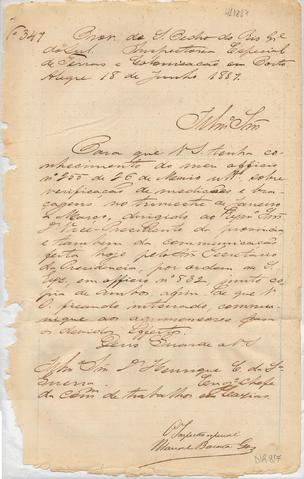 Nº 347
Prov. de S. Pedro do Rio Gde
do Sul. Inspectoria Especial
de Terras e Colonisação em Porto
Alegre 18 de Junho 1887.
Illmo Snr
Para que V. S. tenha co-
nhecimento do meu officio
nº 255 de 26 de Março sobre
verificação de medições e
no trimestre de Janeiro
a Março, dirigido ao Exmo Snr
Vice-Presidente da provincia
e tambem da communicação
feita hoje pelo Snr Secretario
da Presidencia, por ordem de S.
Exc. em officio nº 532 junto co-
pia de ambos afim de que V.
S. ficando inteirado, commu-
nique aos agrimensores para
os devidos effeitos.
Deus Guarde a V. S.
Illmo Snr Dr Henrique C. da Sª
Engº Chefe
da Comm. de trabalhos em Caxias
O Inspector especial
Manoel Barata Goes
NR 87